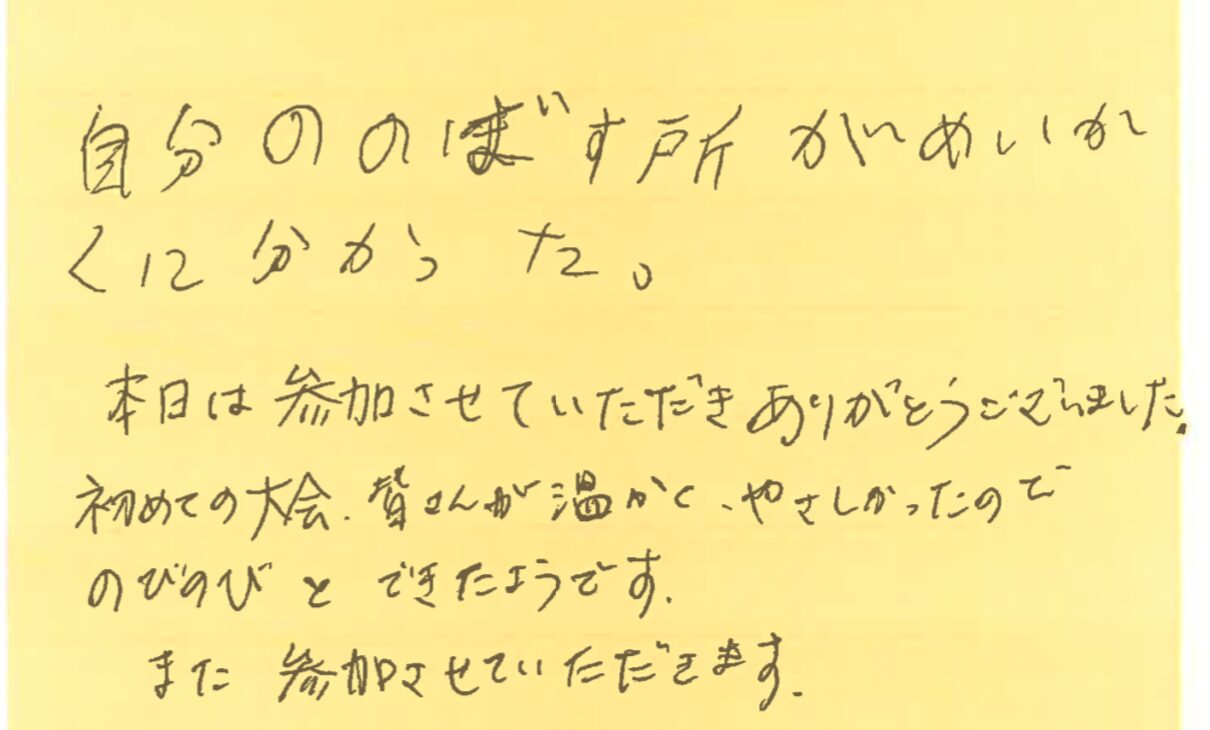 自分ののばす所がめいか
くに分かった。
本日は参加させていただきありがとうございました。
初めての大会、皆さんが温かく、やさしかったので
のびのびとできたようです。
また参加させていただきます。